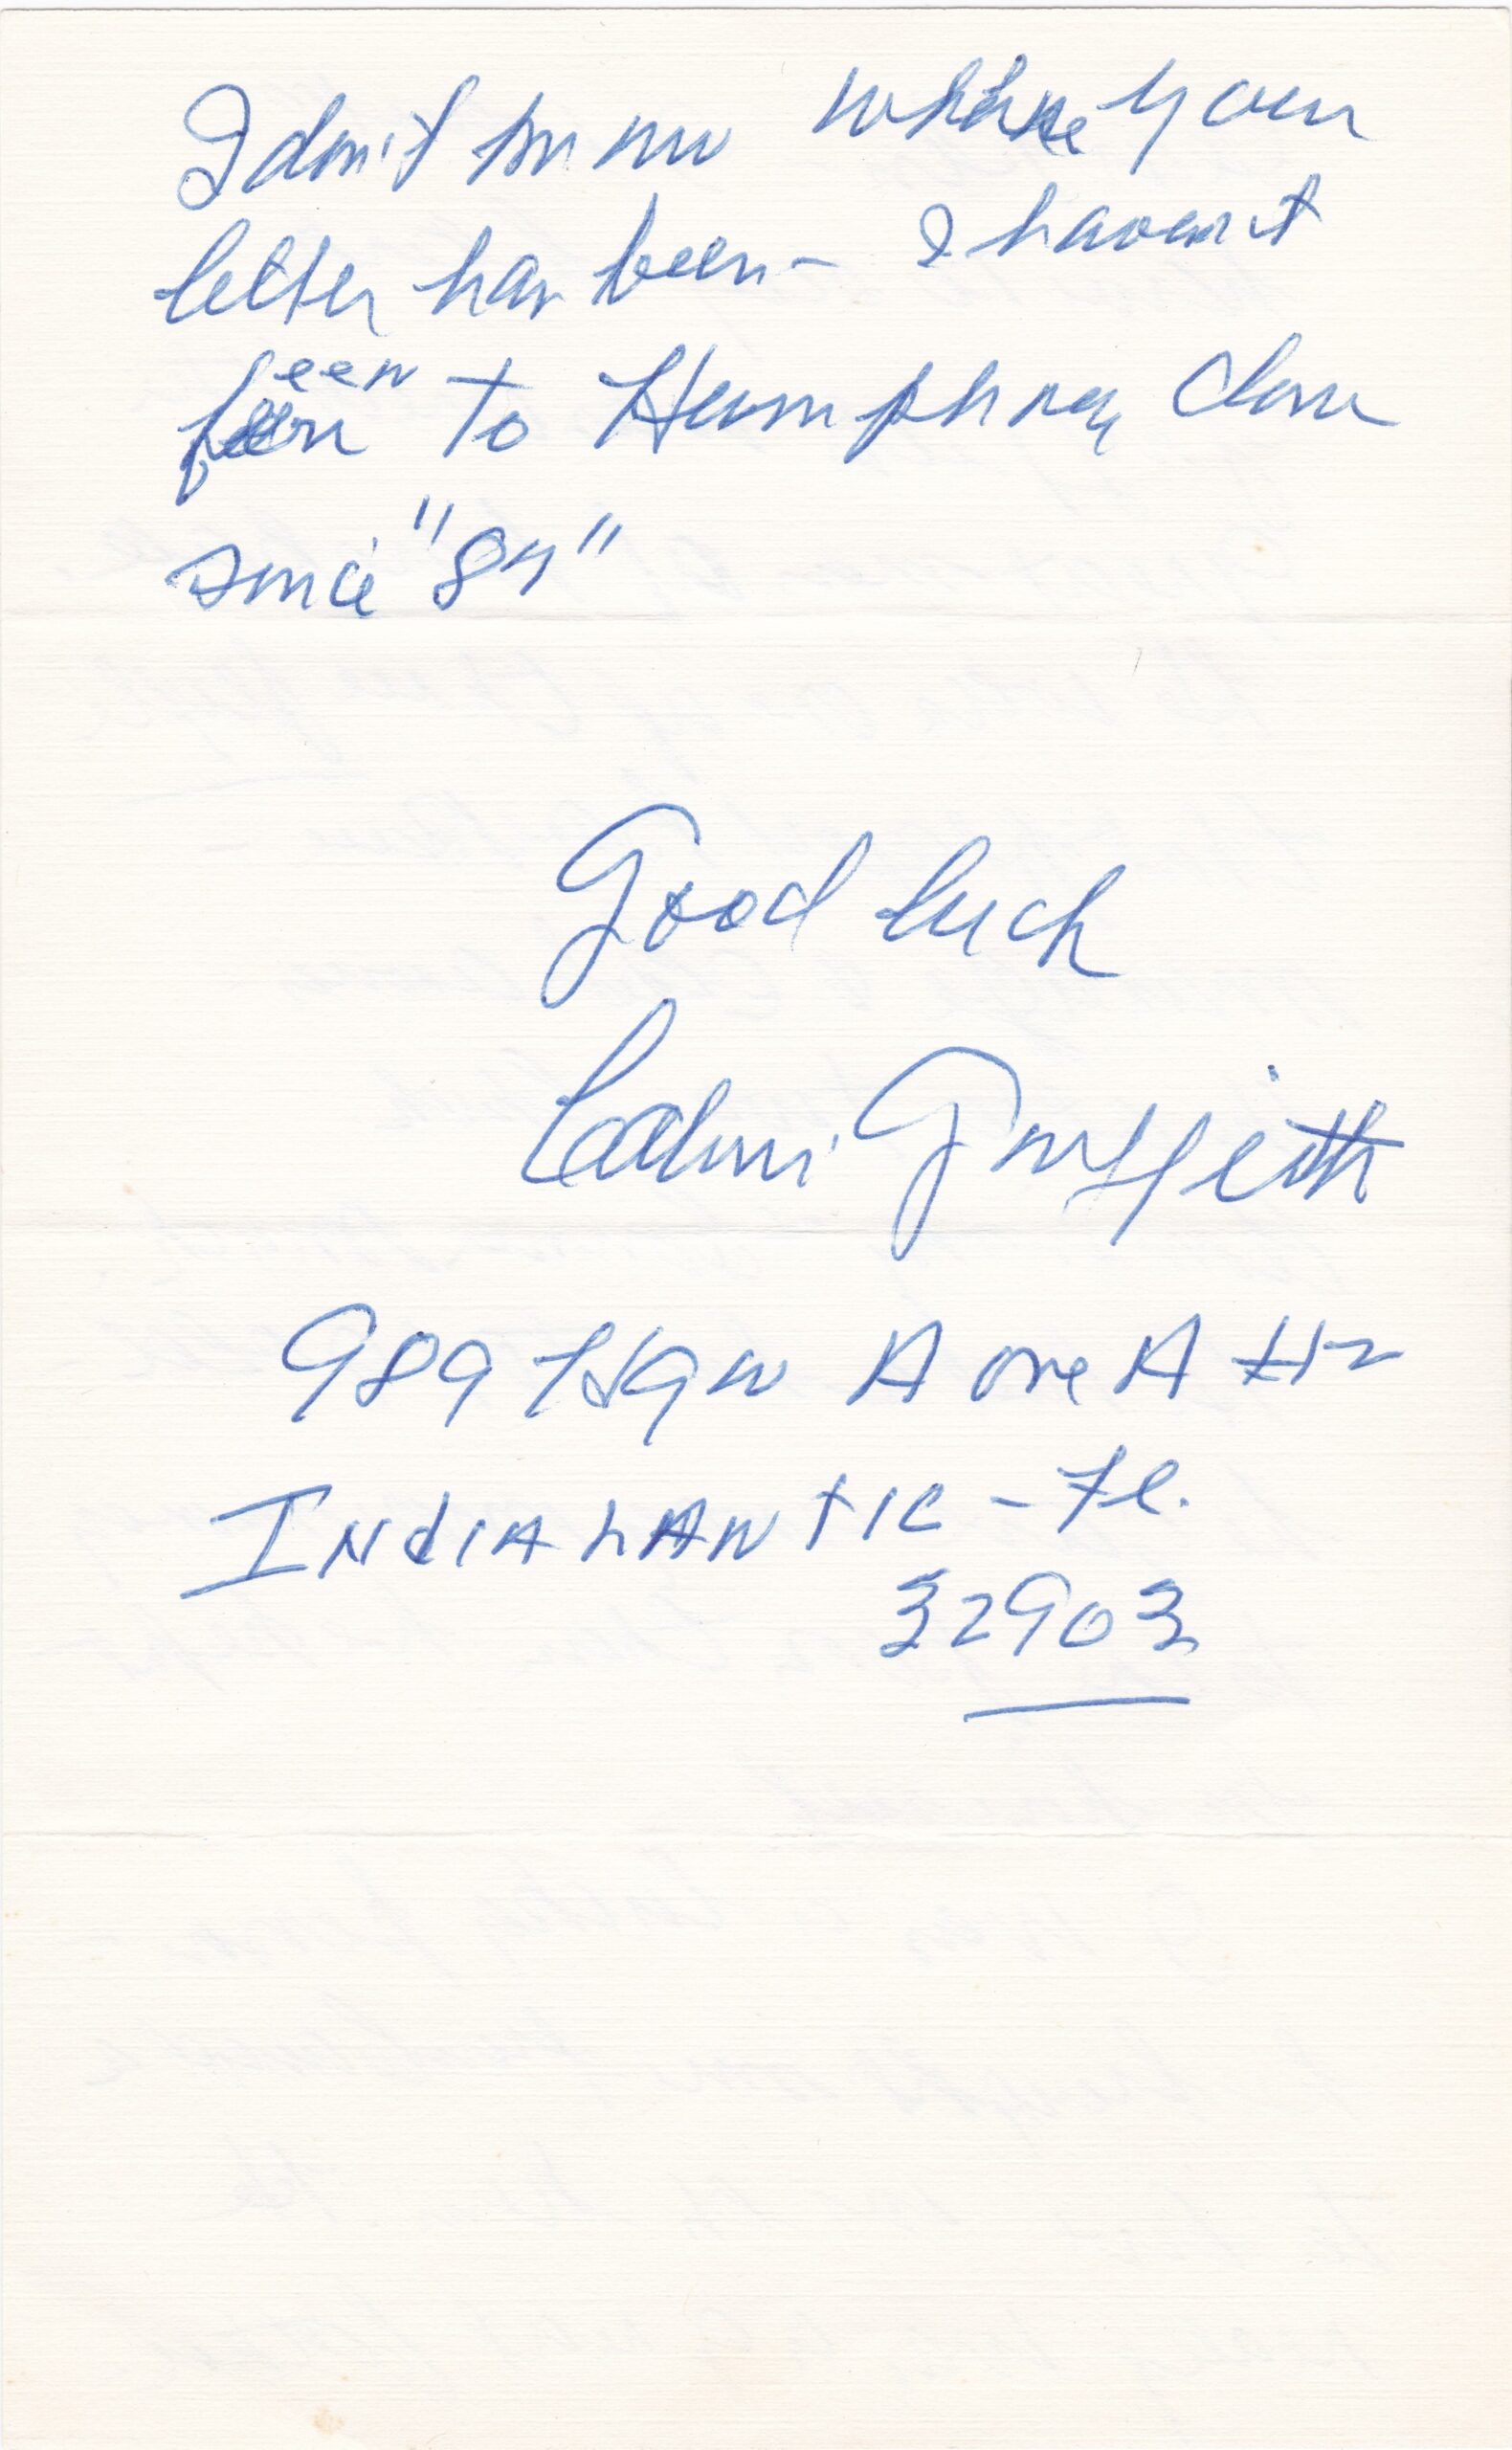 I don't know where your
letter has been - I haven't
been to Humphrey Dome
since "84"
Good luck
Calvin Griffith
989 HGW A one A #2
INdIALANTIC - Fl.
32903